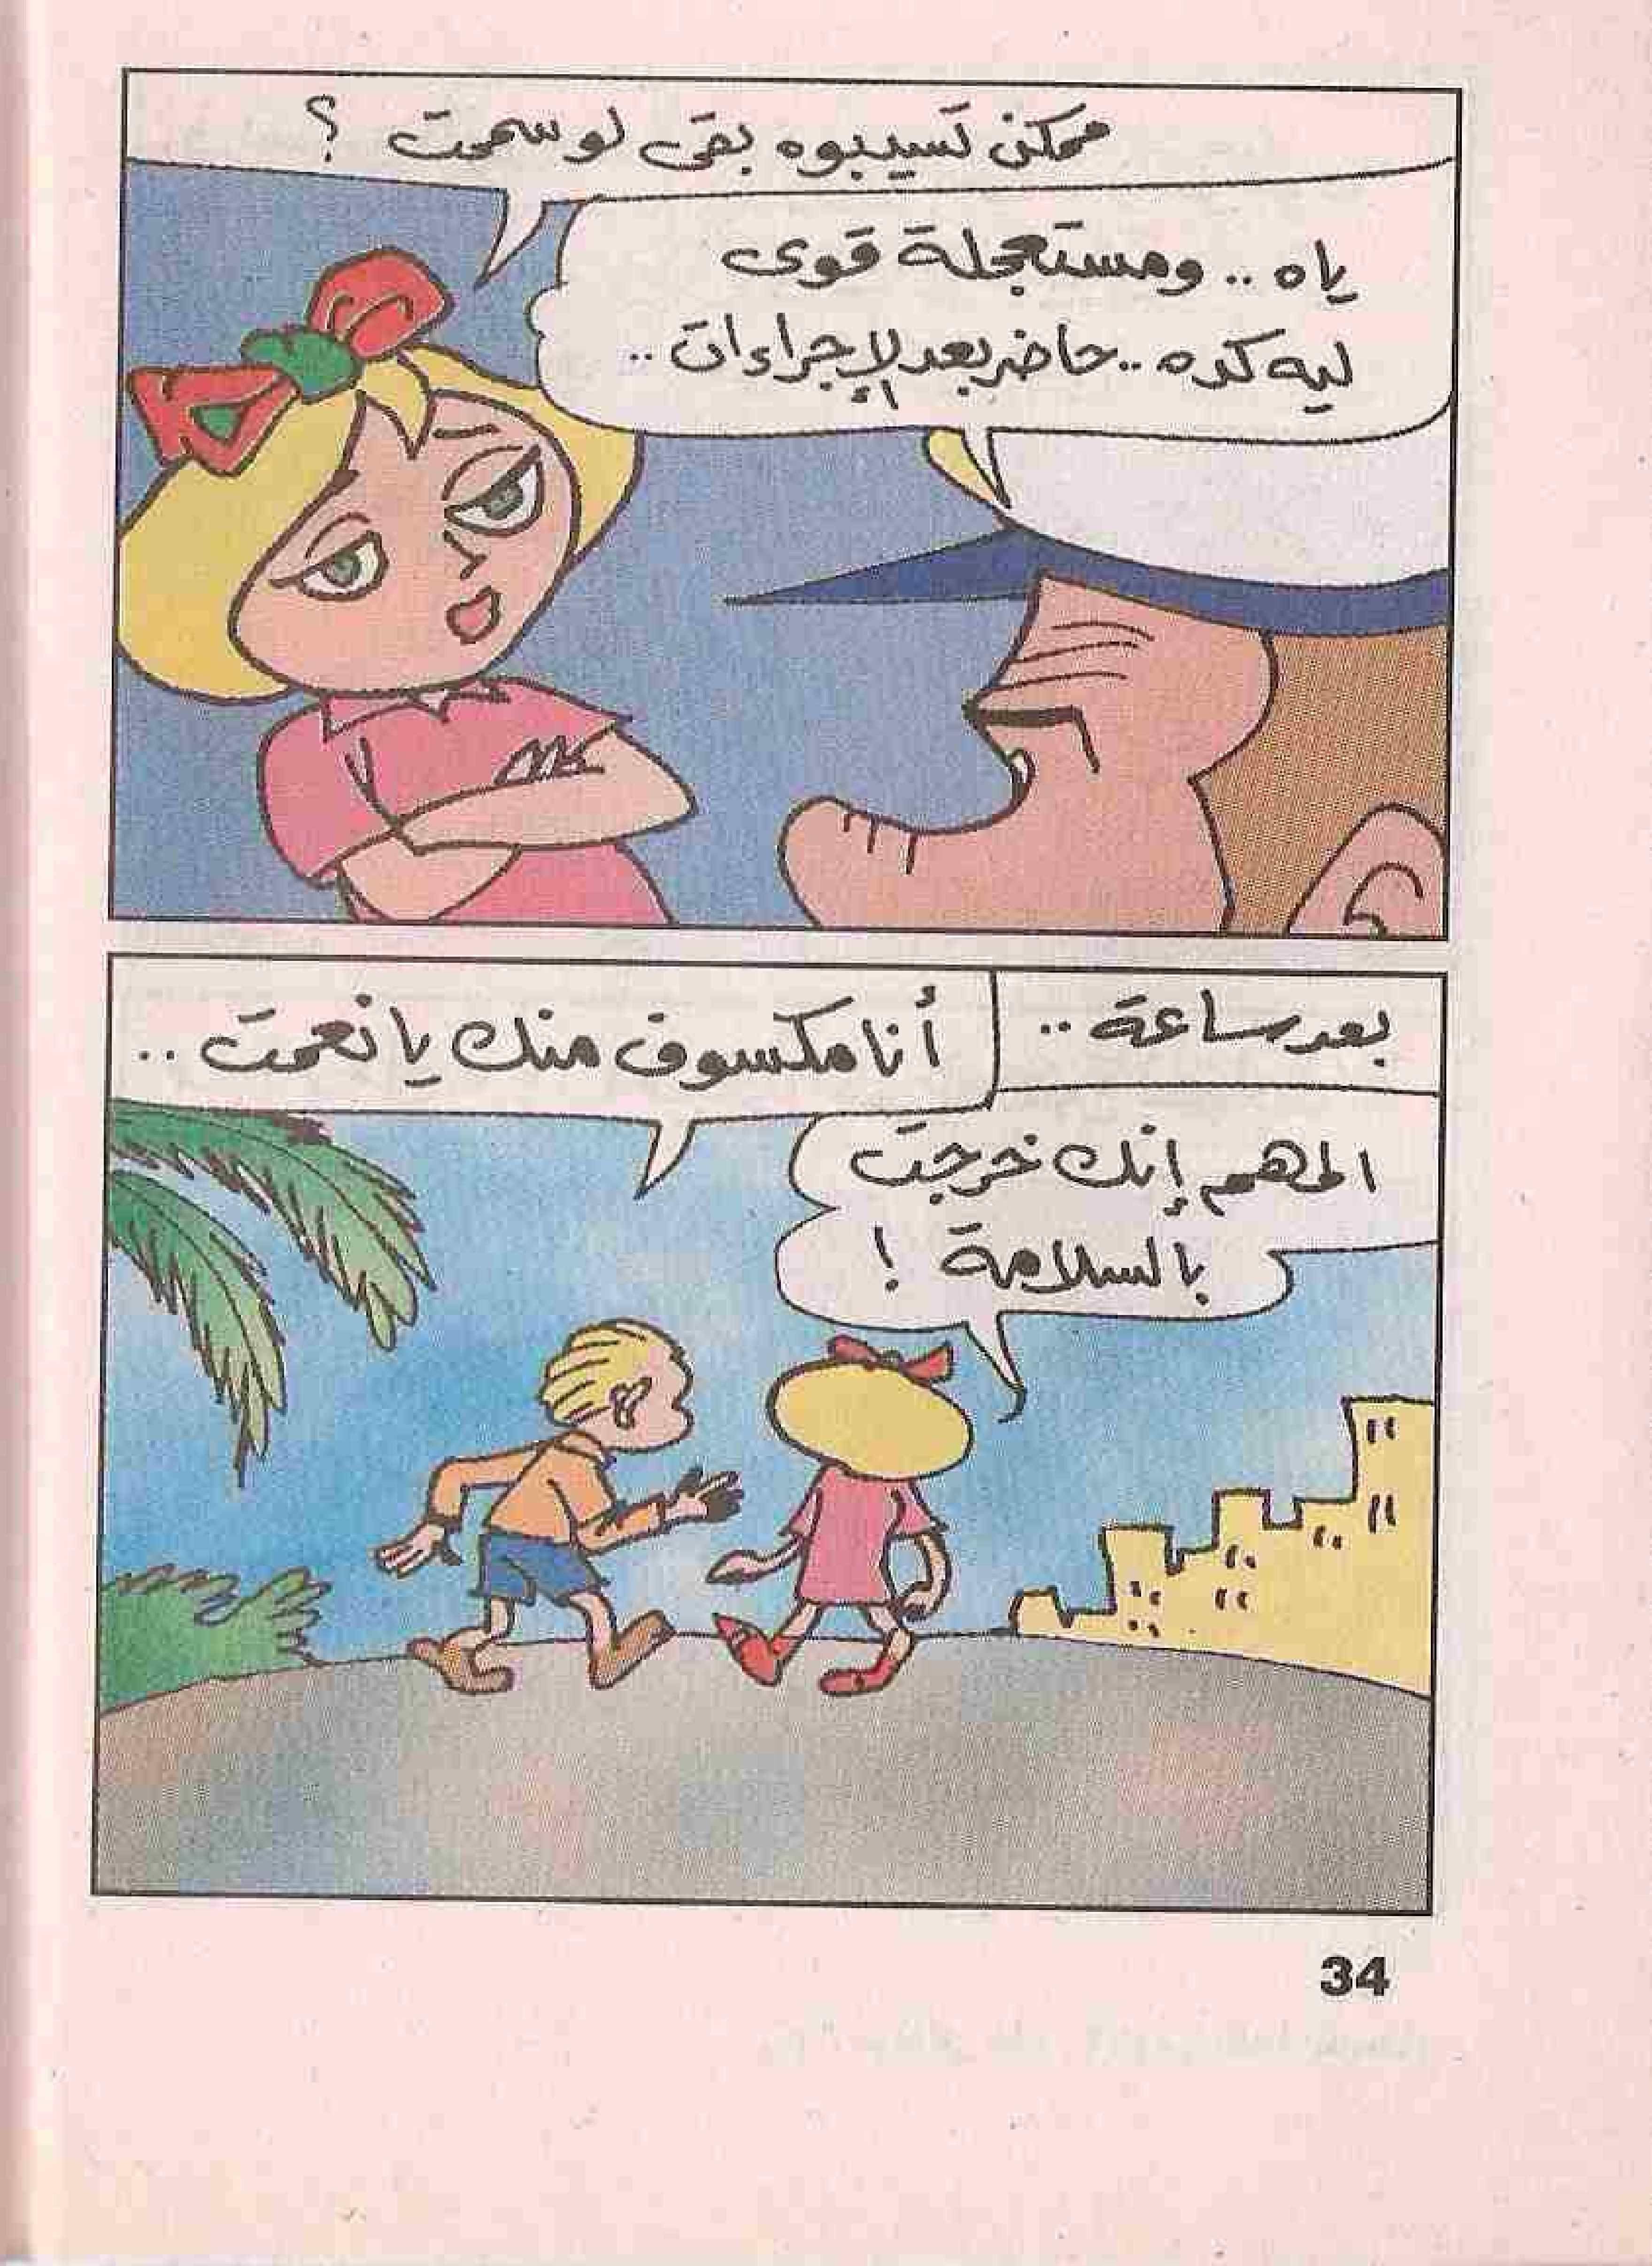 ممكن تسيبوه بقى لو سمحت ؟
ياه .. ومستعجلة قوى
ليه كده .. حاضر بعد الإجراءات ..
بعد ساعة ..
أنا مكسوف منك يا نعمت ..
المهم إنك خرجت
بالسلامة !
34